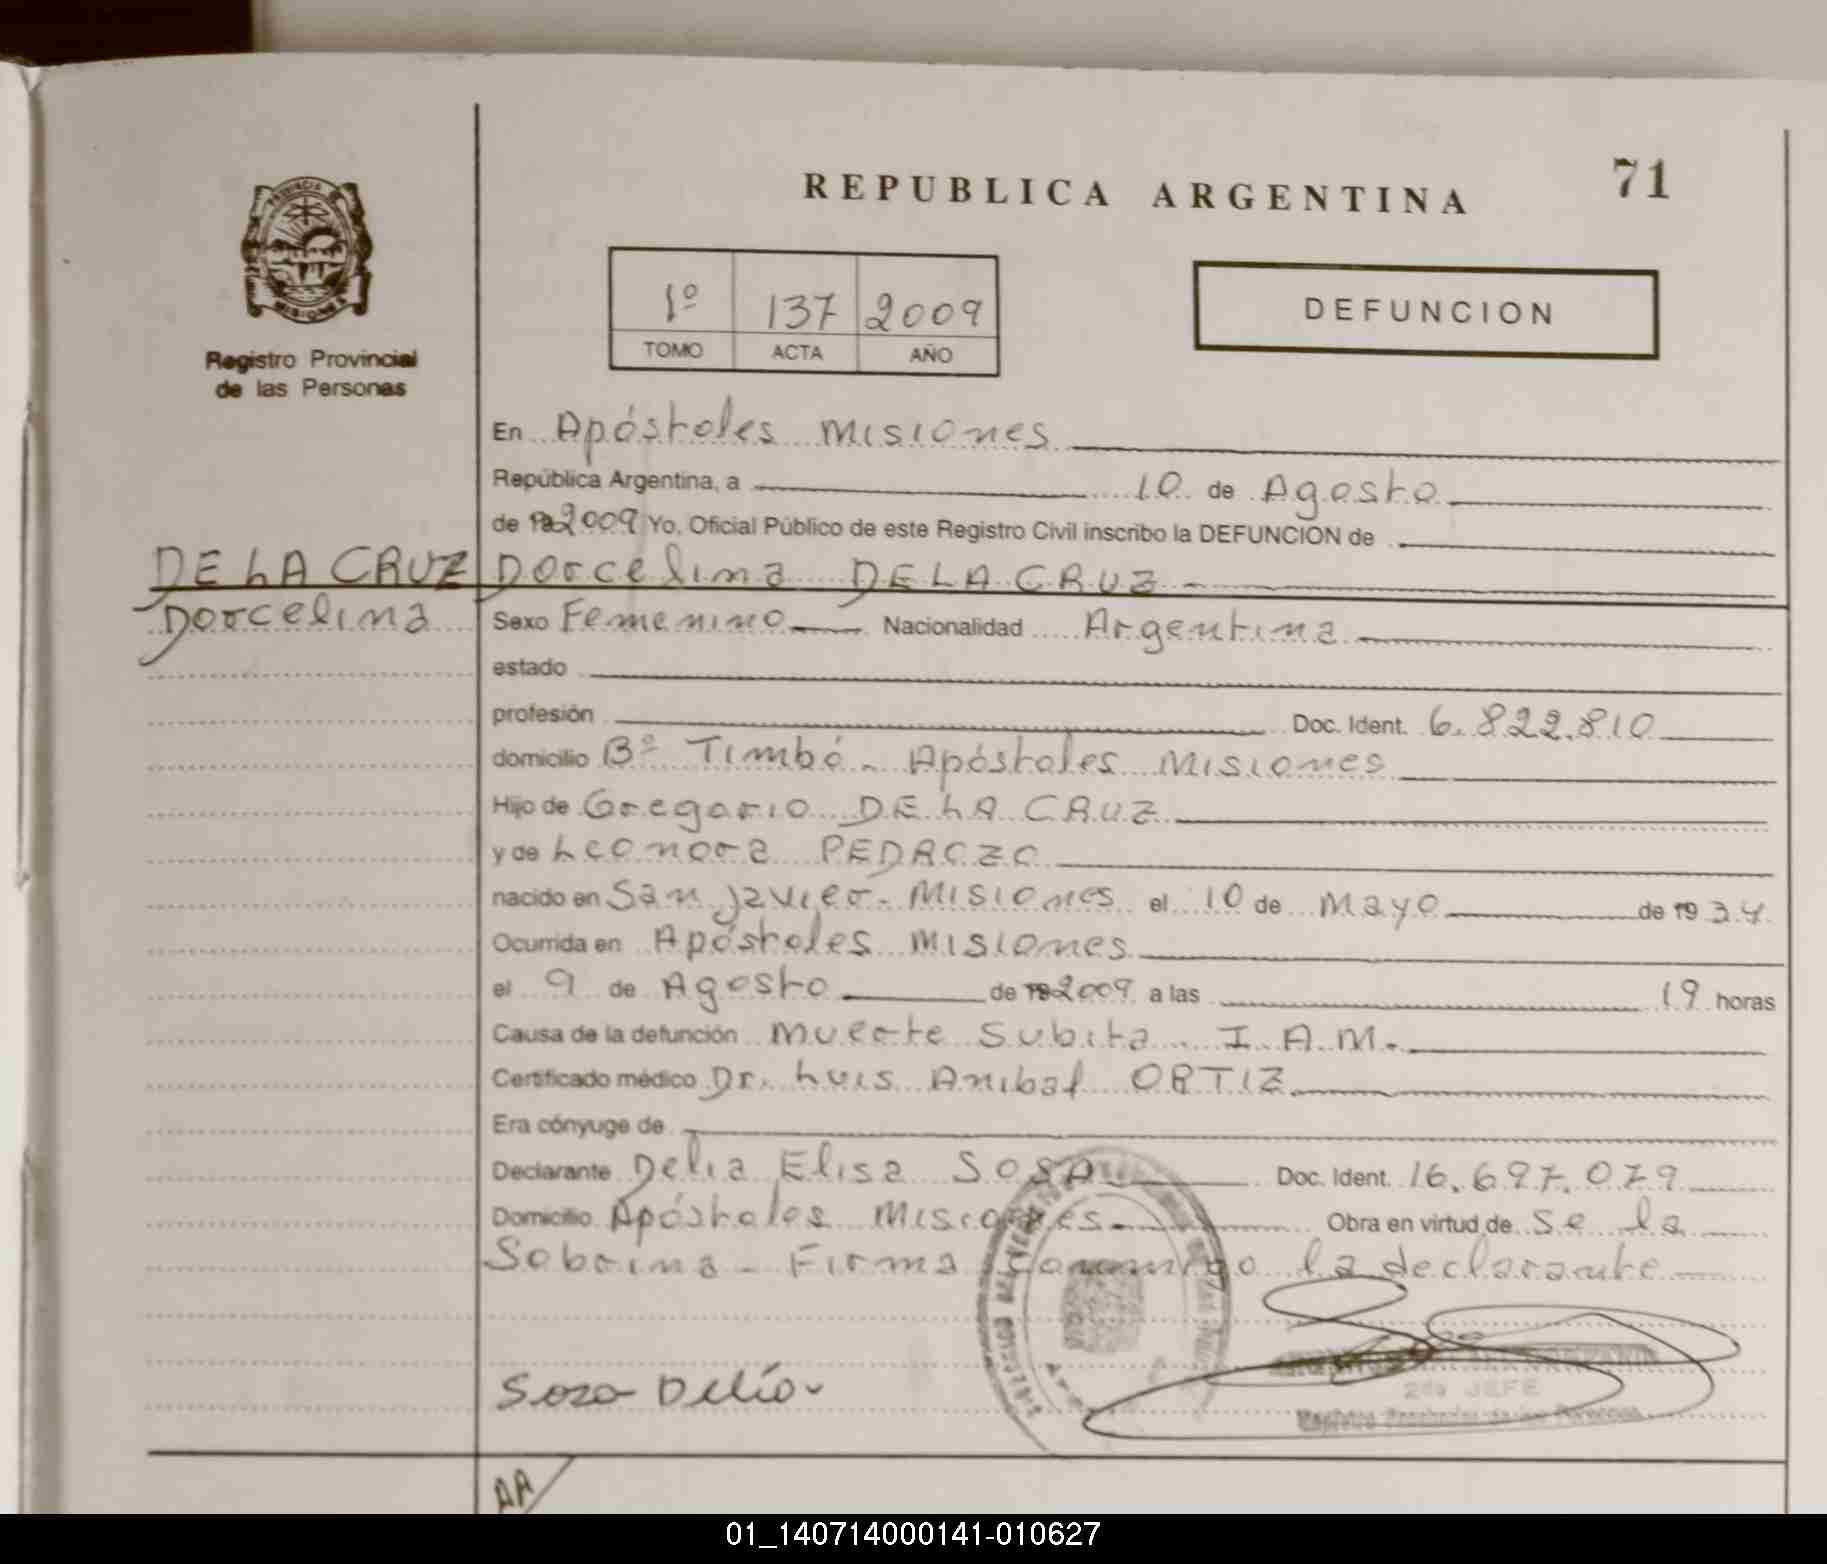 71
REPUBLICA ARGENTINA
PROVINCIA
MISIONES
Registro Provincial
de las Personas
1º 137 2009
TOMO ACTA AÑO
DEFUNCION
En Apóstoles Misiones
República Argentina, a 10 de Agosto
de 2009 Yo, Oficial Público de este Registro Civil inscribo la DEFUNCION de
DE LA CRUZ Dorcelina DE LA CRUZ
Dorcelina Sexo Femenino Nacionalidad Argentina
estado
profesión Doc. Ident. 6.822.810
domicilio Bº Timbó - Apóstoles Misiones
Hijo de Gregorio DE LA CRUZ
y de Leonora PEDROZO
nacido en San Javier - Misiones el 10 de Mayo de 1934
Ocurrida en Apóstoles Misiones
el 9 de Agosto de 2009 a las 19 horas
Causa de la defunción Muerte Subita I.A.M.
Certificado médico Dr. Luis Anibal ORTIZ
Era cónyuge de
Declarante Delia Elisa SOSA Doc. Ident. 16.697.079
Domicilio Apóstoles Misiones Obra en virtud de Se la
Sobrina - Firma conmigo la declarante
Sosa Delia
2do JEFE
Registro Provincial de las Personas
AA
01_140714000141-010627